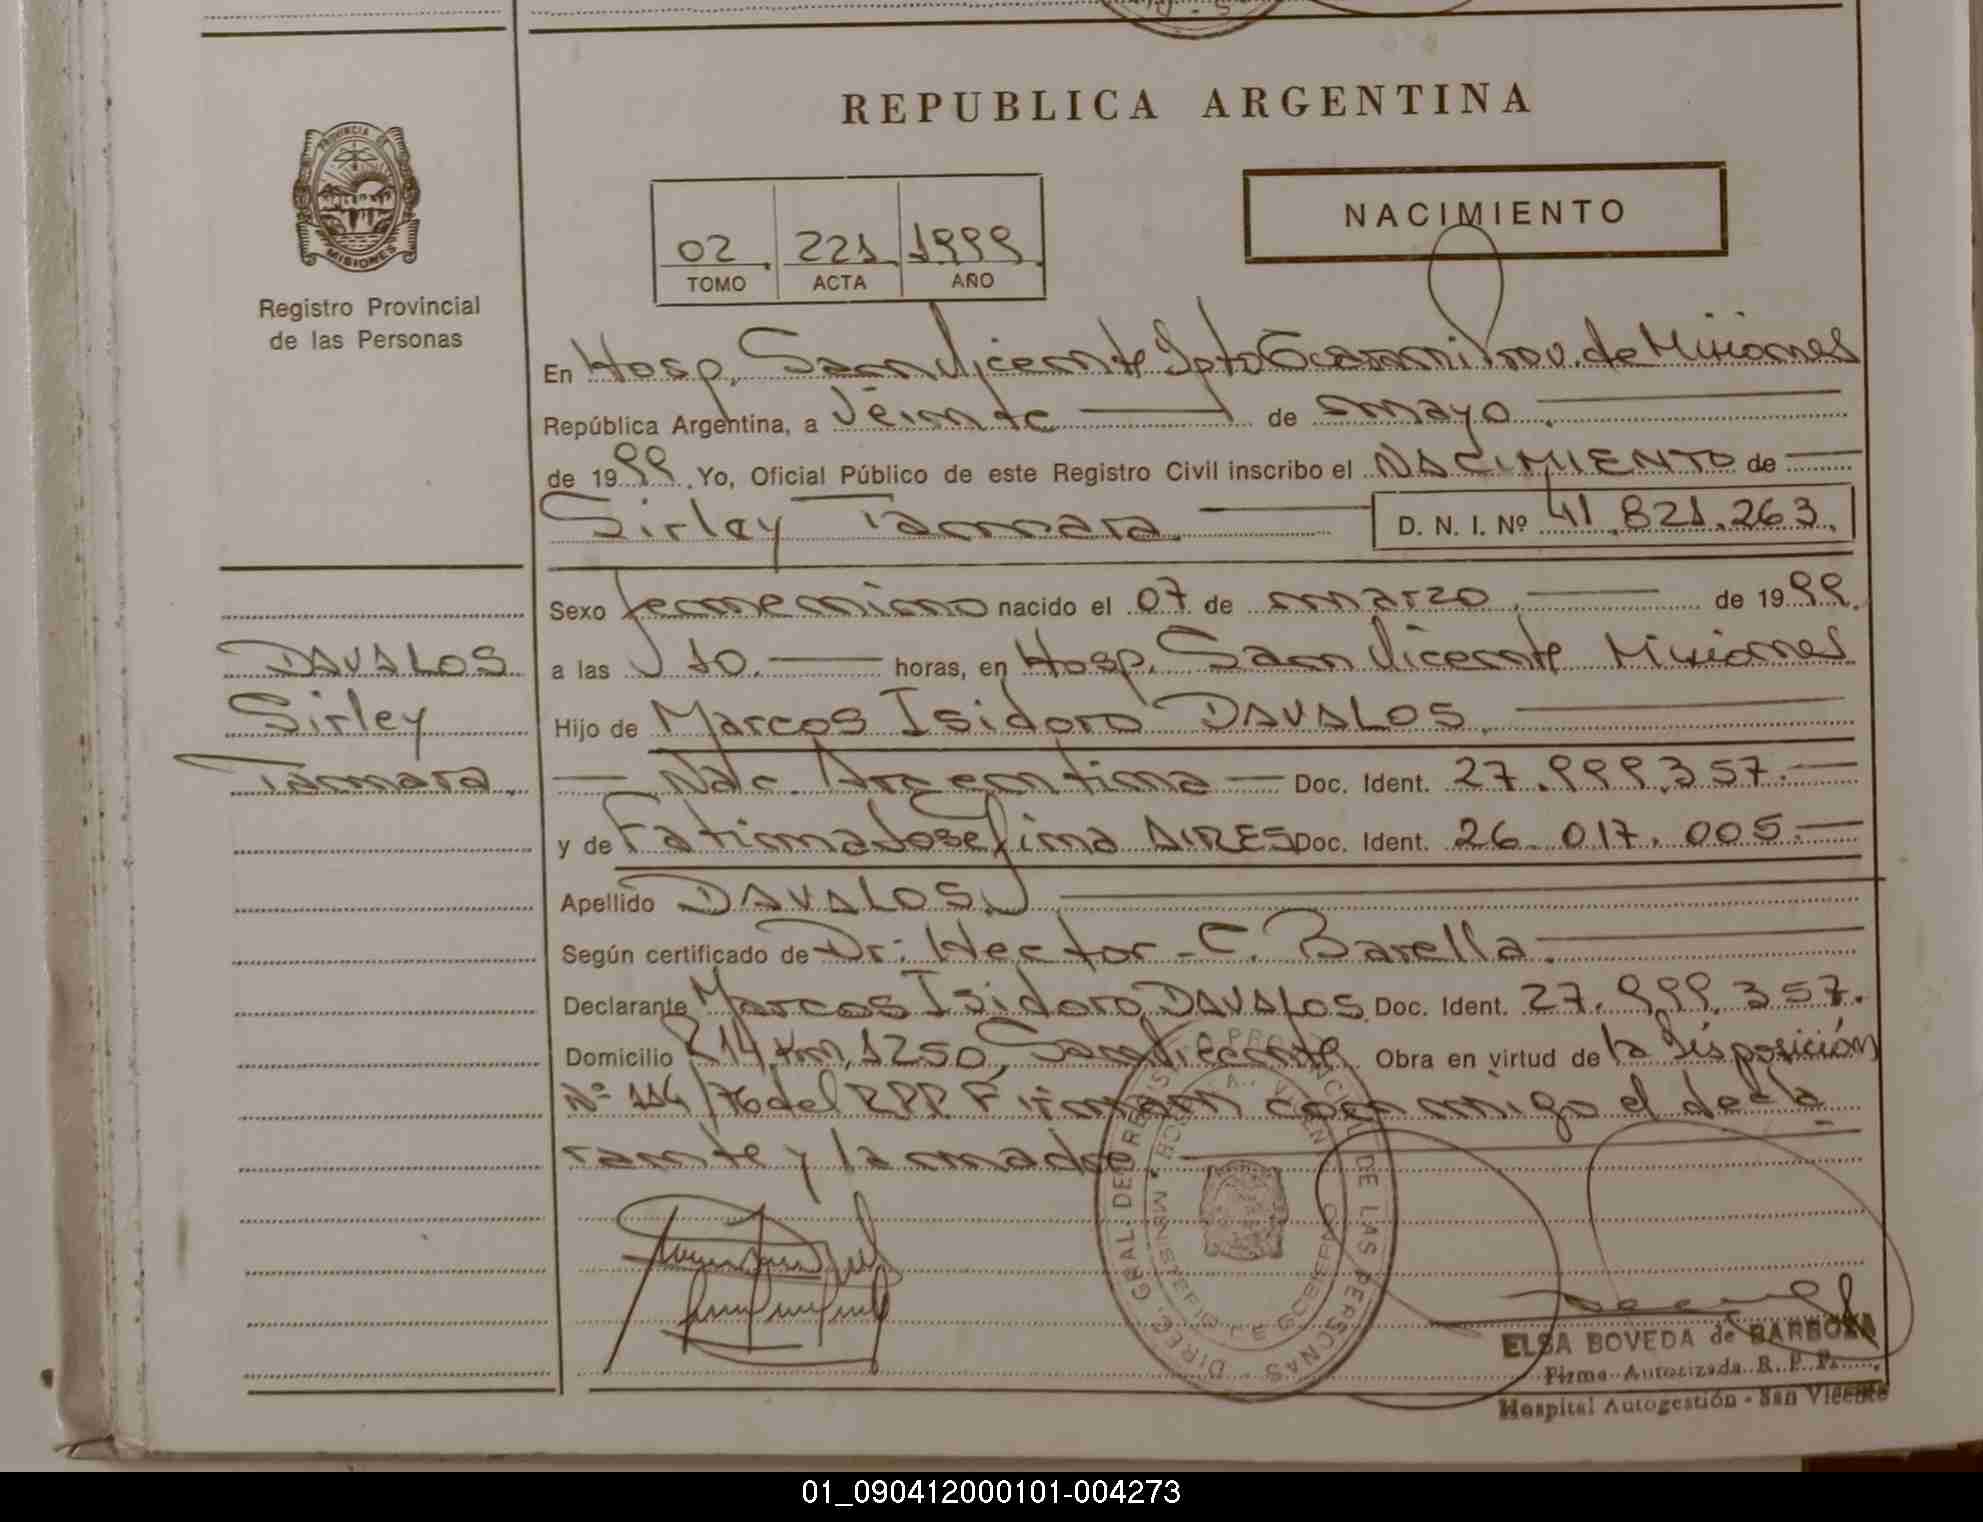 REPUBLICA ARGENTINA
PROVINCIA DE
MISIONES
Registro Provincial
de las Personas
NACIMIENTO
02 221 1999
TOMO ACTA AÑO
En Hosp. San Vicente Dpto Guaraní Prov. de Misiones
República Argentina, a Veinte de mayo
de 1999. Yo, Oficial Público de este Registro Civil inscribo el NACIMIENTO de
Sirley Tamara D. N. I. Nº 41.821.263.
Sexo femenino nacido el 07 de marzo. de 1999.
DAVALOS
Sirley
Tamara.
a las 10. horas, en Hosp. San Vicente Misiones
Hijo de Marcos Isidoro DAVALOS.
Nac. Argentina Doc. Ident. 27.999.357.
y de Fatima Josefina AIRES Doc. Ident. 26.017.005.
Apellido DAVALOS.
Según certificado de Dr: Hector - C. Barella.
Declarante Marcos Isidoro DAVALOS. Doc. Ident. 27.999.357.
Domicilio R14 Km, 1250, San Vicente Obra en virtud de la disposición
Nº 114/76 del RPP Firman conmigo el decla
rante y la madre
DIREC. GRAL. DEL REGISTRO PROVINCIAL DE LAS PERSONAS
MINISTERIO DE GOBIERNO
ELSA BOVEDA de BARBOZA
Firma Autorizada R. P. P.
Hospital Autogestión - San Vicente
01_090412000101-004273